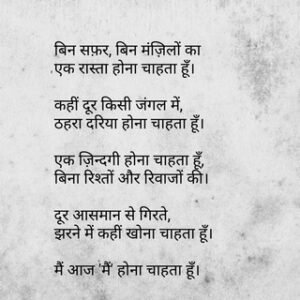 बिन सफ़र, बिन मंज़िलों का
एक रास्ता होना चाहता हूँ।
कहीं दूर किसी जंगल में,
ठहरा दरिया होना चाहता हूँ।
एक ज़िन्दगी होना चाहता हूँ,
बिना रिश्तों और रिवाजों की।
दूर आसमान से गिरते,
झरने में कहीं खोना चाहता हूँ।
मैं आज 'मैं' होना चाहता हूँ।